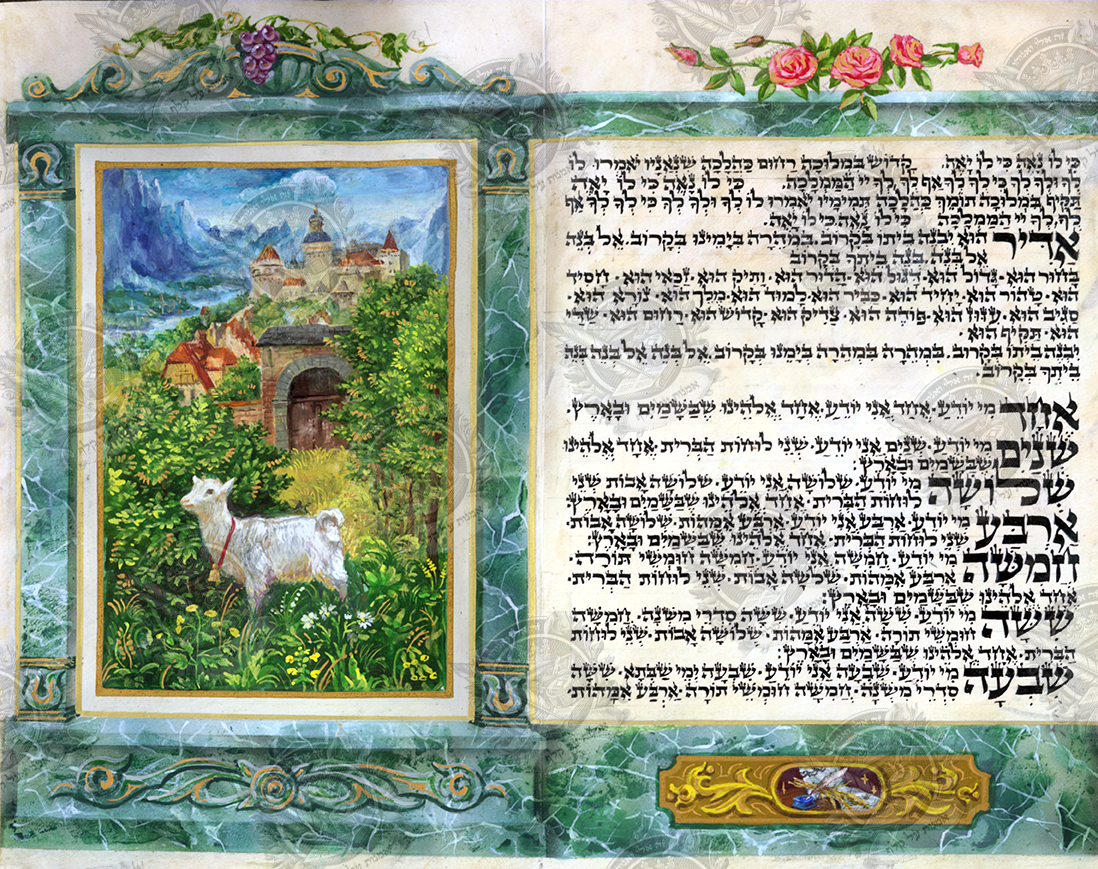 כי לו נאה כי לו יאה. קדוש במלוכה רחום כהלכה שנאניו יאמרו. לו
לך ולך לך כי לך לך אף לך לך יי הממלכה. כי לו נאה כי לו יאה
תקיף במלוכה תומך כהלכה תמימיו יאמרו לו לך ולך לך כי לך לך אף
לך לך יי הממלכה כי לו נאה כי לו יאה.
אדיר הוא יבנה ביתו בקרוב. במהרה בימינו בקרוב. אל בנה
אל בנה בנה ביתך בקרוב
בחור הוא. גדול הוא. דגול הוא. הדור הוא. ותיק הוא. זכאי הוא. חסיד
הוא. טהור הוא. יחיד הוא. כביר הוא. למוד הוא. מלך הוא. נורא הוא.
סגיב הוא. עזוז הוא. פודה הוא. צדיק הוא. קדוש הוא. רחום הוא. שדי
הוא. תקיף הוא.
יבנה ביתו בקרוב. במהרה במהרה בימינו בקרוב. אל בנה אל בנה בנה
ביתך בקרוב.
אחד מי יודע. אחד אני יודע. אחד אלהינו שבשמים ובארץ.
שנים מי יודע. שנים אני יודע. שני לוחות הברית. אחד אלהינו
שבשמים ובארץ:
שלושה מי יודע. שלושה אני יודע. שלושה אבות שני
לוחות הברית. אחד אלהינו שבשמים ובארץ
ארבע מי יודע. ארבע אני יודע. ארבע אמהות. שלושה אבות.
שני לוחות הברית. אחד אלהינו שבשמים ובארץ:
חמשה מי יודע. חמשה אני יודע. חמשה חומשי תורה.
ארבע אמהות. שלשה אבות. שני לוחות הברית.
אחד אלהינו שבשמים ובארץ:
ששה מי יודע. ששה אני יודע. ששה סדרי משנה. חמשה
חומשי תורה. ארבע אמהות. שלושה אבות. שני לוחות
הברית. אחד אלהינו שבשמים ובארץ:
שבעה מי יודע. שבעה אני יודע. שבעה ימי שבתא. ששה
סדרי משנה. חמישה חומשי תורה. ארבע אמהות.